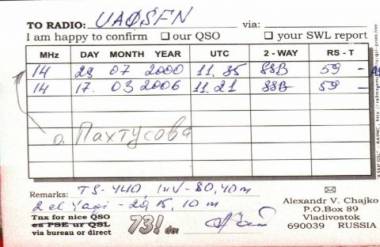 TO RADIO: UA0SFN via:
I am happy to confirm □ our QSO □ your SWL report
MHz DAY MONTH YEAR UTC 2 - WAY RS - T
14 29 07 2000 11.35 SSB 59 -
14 17 03 2006 11.21 SSB 59 -
о. Пахтусова
Remarks: TS-440 InV-80,40m
2 el Yagi - 20, 15, 10 m
Tnx for nice QSO
es PSE ur QSL 73! de:
via bureau or direct
Alexandr V. Chajko
P.O.Box 89
Vladivostok
690039 RUSSIA